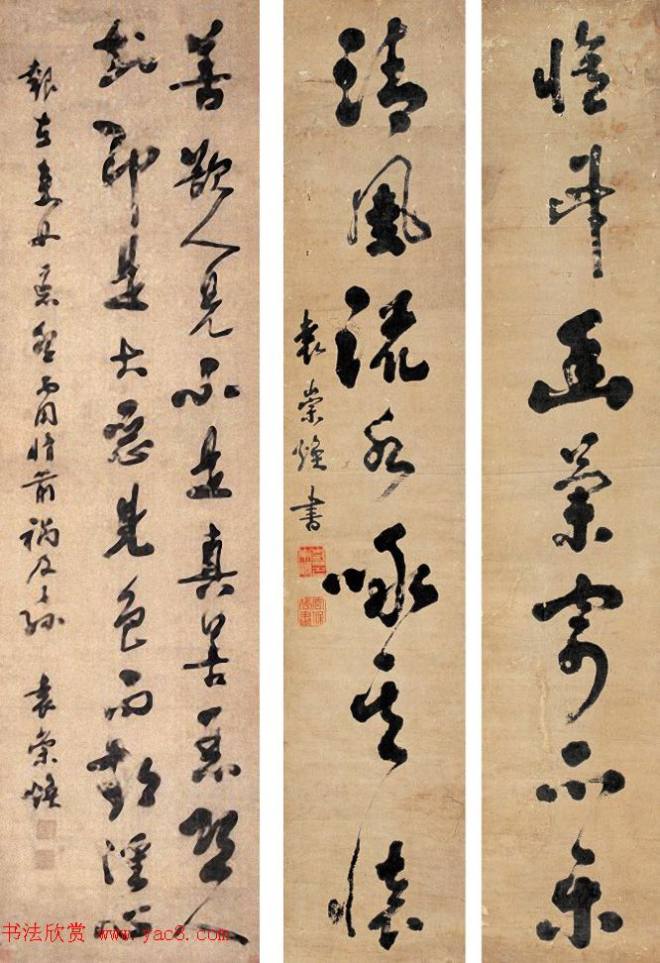 幽蘭寄所樂
清風流水咏其懷
袁崇煥書
善欲人見不是真善惡恐人
知即是大惡見色而起淫心
報在妻女匿怨而用暗箭禍及子孫 袁崇煥
书法欣赏 www.yac8.com